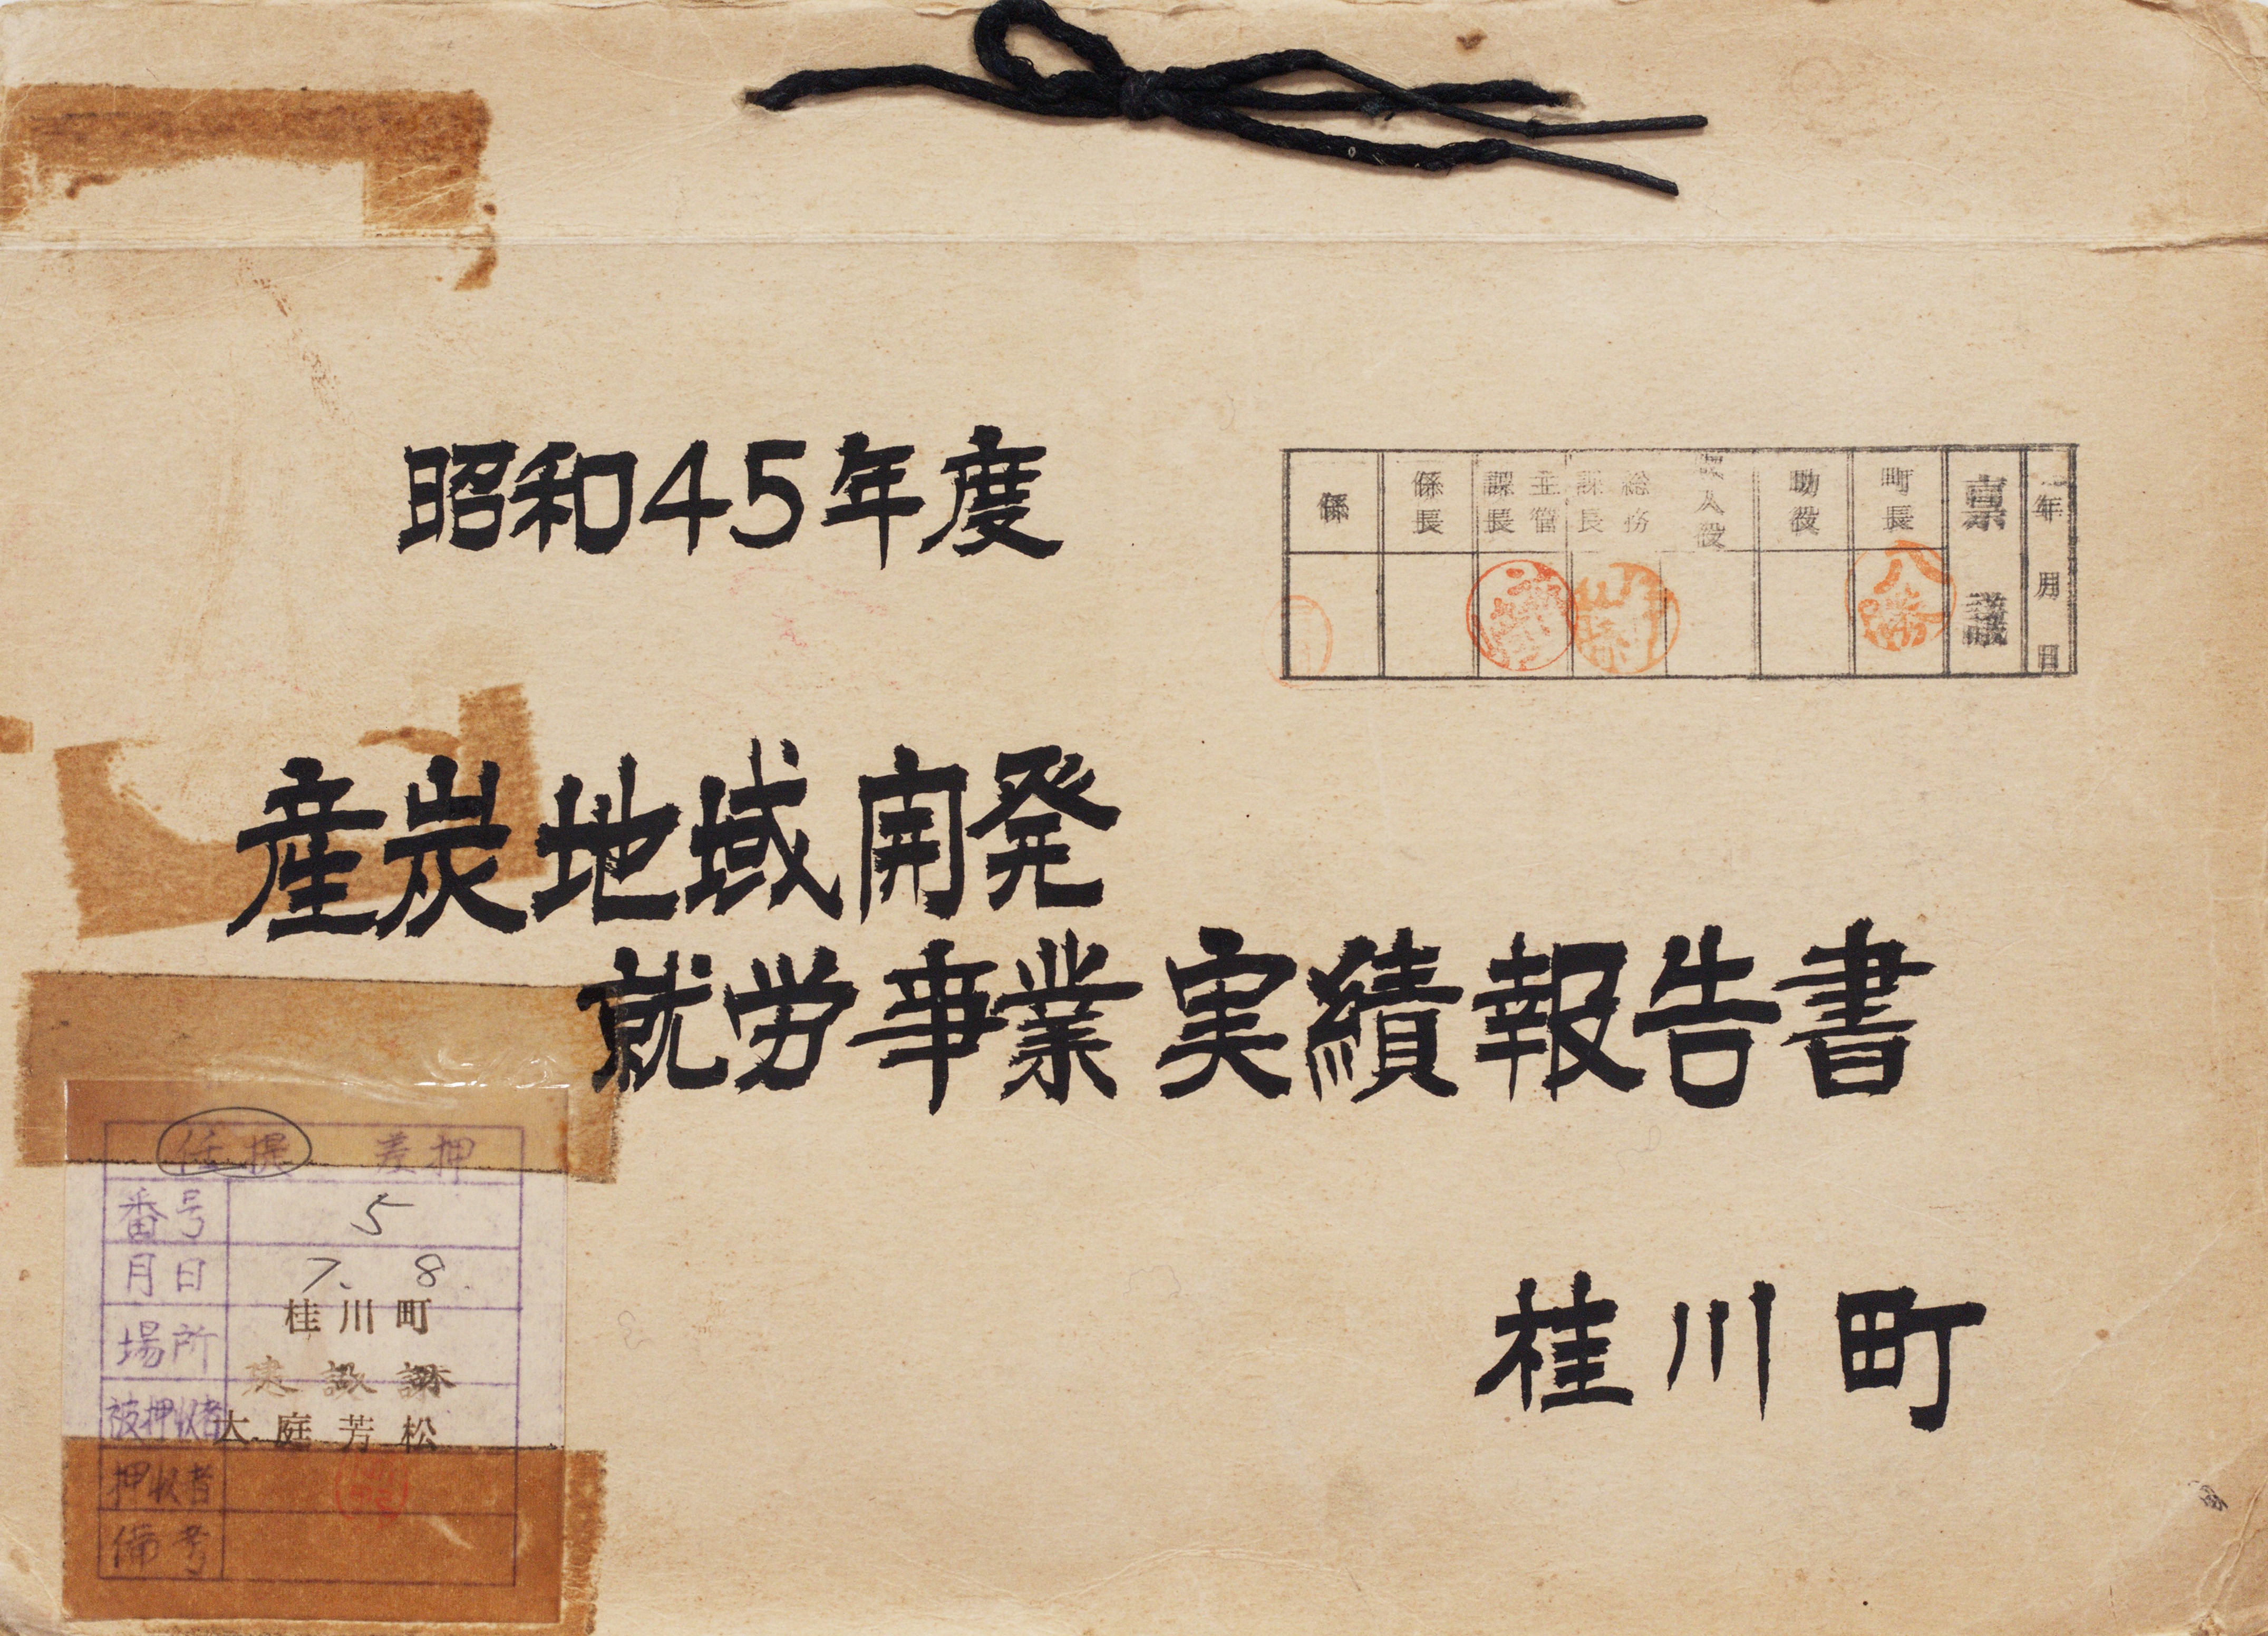 昭和45年度
年 月 日
禀議
町長
助役
入役
総務課長
主管課長
係長
係
産炭地域開発
就労事業実績報告書
桂川町
任提 差押
番号 5
月日 7. 8.
場所 桂川町
建設課
被押収者 大庭芳松
押収者
備考